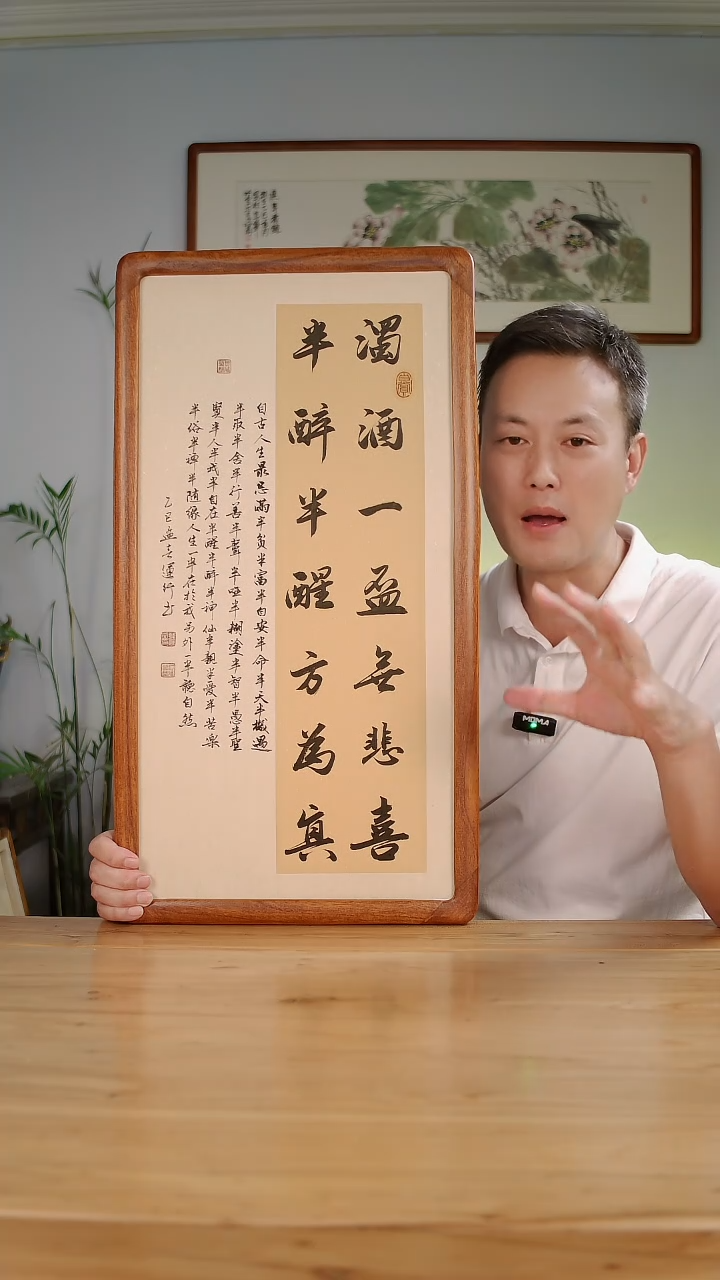 濁酒一盃無悲喜
半醉半醒方為真
自古人生最忌滿半貧半富半自安半命半天半機遇
半取半舍半行善半聾半啞半糊塗半智半愚半聖
賢半人半我半自在半醒半醉半神仙半親半愛半苦樂
半俗半禪半隨緣人生一半在於我另外一半聽自然
乙巳孟春運行書
MOMA